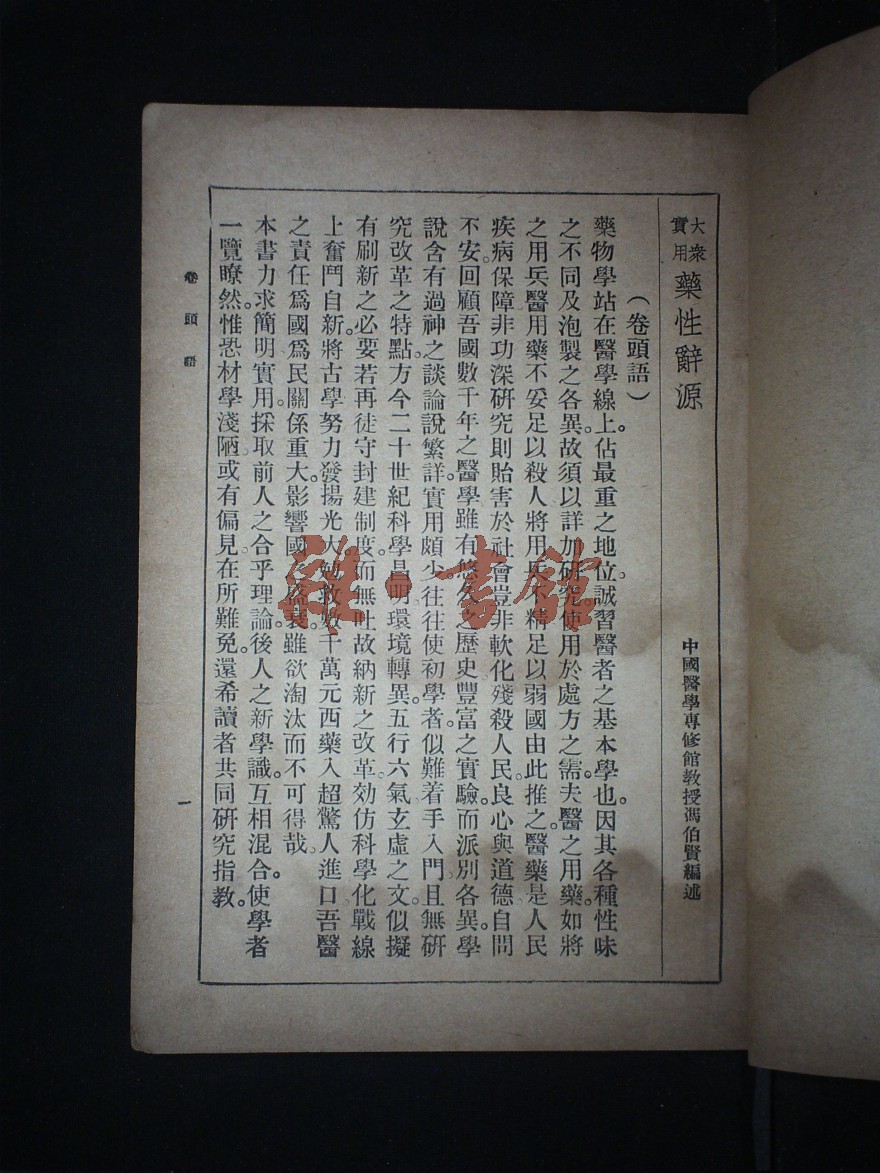 大衆實用 藥性辭源
中國醫學專修館教授馮伯賢編述
（卷頭語）
藥物學站在醫學線上。佔最重之地位。誠習醫者之基本學也。因其各種性味
之不同及泡製之各異。故須以詳加研究。使用於處方之需。夫醫之用藥。如將
之用兵。醫用藥不妥足以殺人。將用兵不精足以弱國。由此推之。醫藥是人民
疾病保障。非功深研究則貽害於社會。豈非軟化殘殺人民。良心與道德自問
不安。回顧吾國數千年之醫學。雖有悠久之歷史。豐富之實驗。而派別各異。學
說含有過神之談。論說繁詳。實用頗少。往往使初學者似難着手入門。且無研
究改革之特點。方今二十世紀科學昌明。環境轉異。五行六氣玄虛之文。似擬
有刷新之必要。若再徒守封建制度。而無吐故納新之改革。効仿科學化戰線
上奮鬥自新。將古學努力發揚光大。勉救數千萬元西藥入超驚人進口。吾醫
之責任爲國爲民。關係重大。影響國之盛衰。雖欲淘汰而不可得哉。
本書力求簡明實用。採取前人之合乎理論。後人之新學識。互相混合。使學者
一覽瞭然。惟恐材學淺陋。或有偏見。在所難免。還希讀者共同研究指教。
卷頭語
一
雜·書館